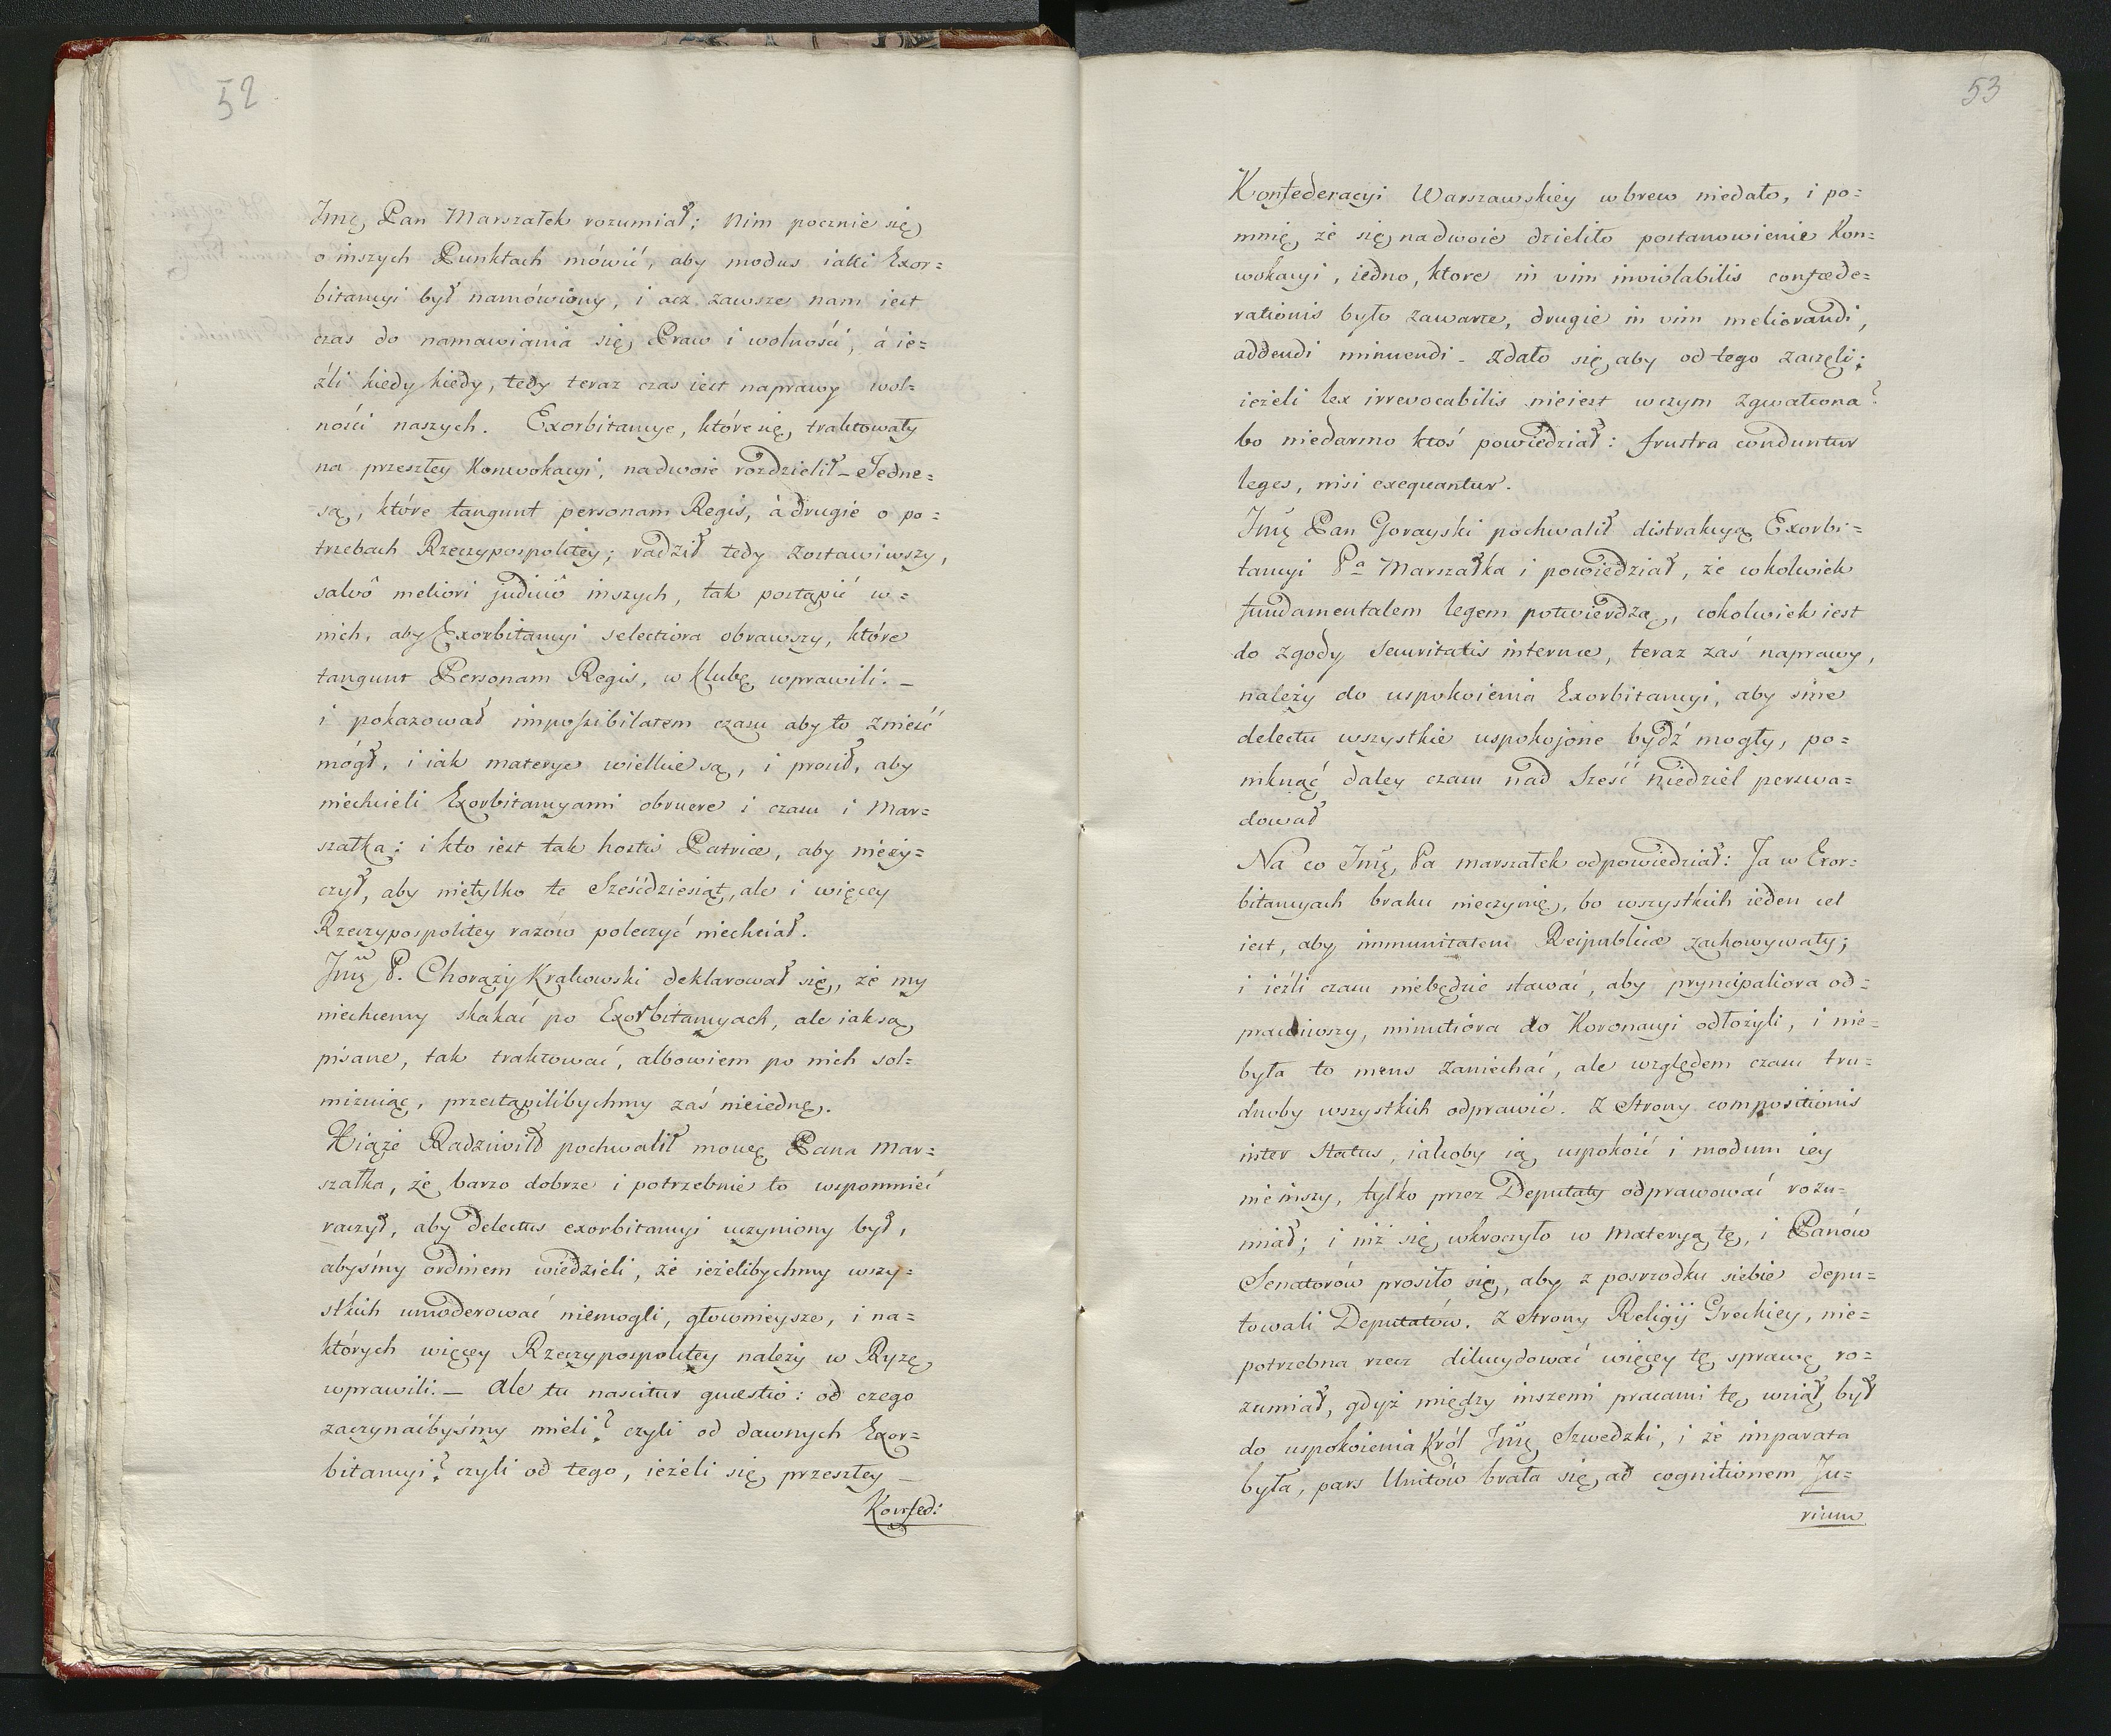 52
Jmę Pan Marszałek rozumiał; nim pocznie się
o inszych Punktach mówić, aby modus iakki Exor=
bitancyi był namówiony, i acz zawsze nam iest
czas do namawiania się Praw i wolności, á ie=
źli kiedy kiedy, tedy teraz czas iest naprawy wol=
ności naszych. Exorbitancye, które się traktowały
na przeszłey Konwokacyi, nadwoie rozdzielił – Jedne=
są, które tangunt personam Regis, á drugie o po=
trzebach Rzeczypospolitey; radził tedy zostawiwszy,
salvô meliori judiciô inszych, tak postąpić w=
nich, aby Exorbitancyi selectiora obrawszy, które
tangunt Personam Regis, w klubę wprawili. –
i pokazował impossibilatem czasu aby to znieść
mógł, i iak materye wielkie są, i prosił, aby
niechcieli Exorbitancyami obruere i czasu i Mar=
szałka: i kto iest tak hostis Patriæ, aby nieży=
czył, aby nietylko te Sześćdziesiąt, ale i więcey
Rzeczypospolitey razów poleczyć niechciał.
Jmę P. Chorąży Krakowski deklarował się, że my
niechcemy skakać po Exorbitancyach, ale iak są
pisane, tak traktować, albowiem po nich sol=
mizuiąc, przestąpilibychmy zaś nieiednę.
Xiąże Radziwiłł pochwalił mowę Pana Mar=
szałka, że barzo dobrze i potrzebnie to wspomnieć
raczył, aby delectus exorbitancyi uczyniony był,
abyśmy ordinem wiedzieli, że ieżelibychmy wszy=
stkich umoderować niemogli, głownieysze, i na=
których więcey Rzeczypospolitey należy w Ryzę
wprawili. – Ale tu nascitur quæstio: od czego
zaczynaćbyśmy mieli? czyli od dawnych Exor=
bitancyi? czyli od tego, ieżeli się przeszłey –
Konfed:
53
Konfederacyi Warszawskiey wbrew niedało, i po=
mnię, że się nadwoie dzieliło postanowienie Kon=
wokacyi, iedno, ktore in vim inviolabilis confæde=
rationis było zawarte, drugie in vim meliorandi,
addendi minuendi – Zdało się, aby od tego zaczęli;
ieżeli lex irrevocabilis nieiest wczym zgwałcona?
bo niedarmo ktoś powiedział: frustra conduntur
leges, nisi exequantur.
Jmę Pan Gorayski pochwalił distrakcyą Exorbi=
tancyi Pa Marszałka i powiedział, że cokolwiek
fundamentalem legem potwierdza, cokolwiek iest
do zgody securitatis internæ, teraz zaś naprawy,
należy do uspokoienia Exorbitancyi, aby sine
delectu wszystkie uspokojone bydź mogły, po=
mknąć daley czasu nad Sześć niedziel perswa=
dował
Na co Jmę Pa marszałek odpowiedział: Ja w Exor=
bitancyach braku nieczynię, bo wszystkich ieden cel
iest, aby immunitatem Reipublicæ zachowywały;
i ieźli czasu niebędzie stawać, aby pryncipaliora od=
prawiwszy, minutiora do Koronacyi odłożyli, i nie=
była to mens zaniechać, ale względem czasu tru=
dnoby wszystkich odprawić. Z Strony compositionis
inter Status, iakoby ią uspokoić i modum iey
nie inszy, tylko przez Deputaty odprawować rozu=
miał; i niż się wkroczyło w materyą tę, i Panów
Senatorów prosiło się, aby z posrzodku siebie depu=
towali Deputatów. Z Strony Religij Greckiey, nie=
potrzebna rzecz dilucydować więcey tę sprawę ro=
zumiał, gdyż między inszemi pracami tę wziął był
do uspokoienia Król Jmę Szwedzki, i że imparata
była, pars Unitów brała się ad cognitionem Ju=
rium